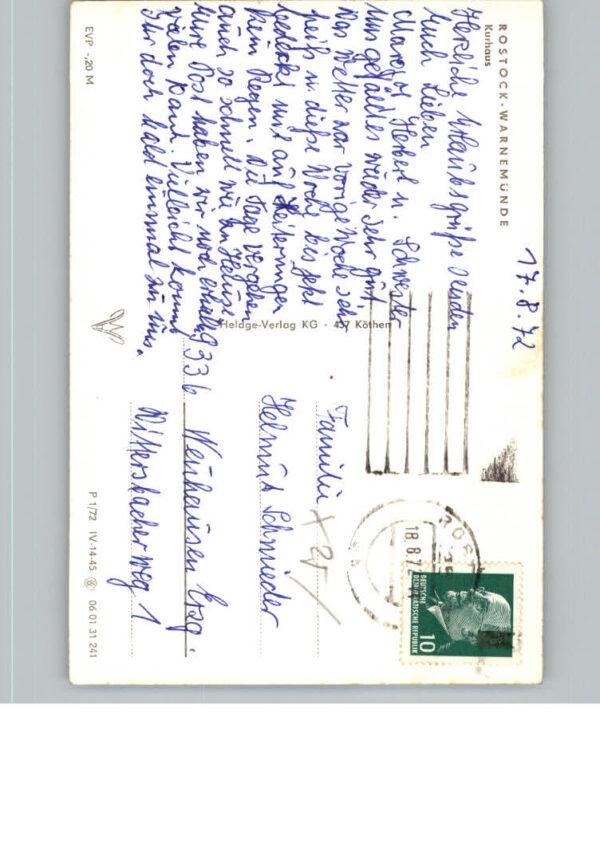 ROSTOCK-WARNEMÜNDE
Kurhaus
17.8.72
Herzliche Urlaubsgrüße senden
Euch Lieben
Margot, Herbert u. Schwester
Uns gefällt es wieder sehr gut
Das Wetter war vorige Woche sehr
heiß u. diese Woche bis jetzt
bedeckt mit auf Heiterungen
kein Regen. Die Tage vergehen
auch so schnell wie zu Hause
Eure Post haben wir noch erhalten
vielen Dank. Vielleicht kommt
Ihr doch bald einmal zu uns.
EVP -,20 M
Heldge-Verlag KG · 437 Köthen
Familie
Helmut Schnieder
9336 Neuhausen Erzg.
Wittersbacher Weg 1
P 1/72 IV-14-45 06 01 31 241
ROST
18.8.7
DEUTSCHE
DEMOKRATISCHE REPUBLIK
10